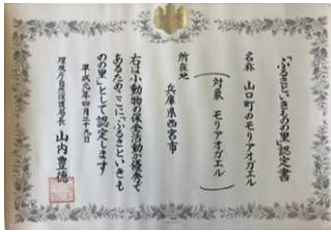 「ふるさといきものの里」認定書
名称 山口町のモリアオガエル
(対象 モリアオガエル)
所在地
兵庫県西宮市
右は小動物の保全活動が優秀で
あるためここに「ふるさといきも
のの里」として認定します
平成元年四月二十九日
環境庁自然保護局長 山内豊徳